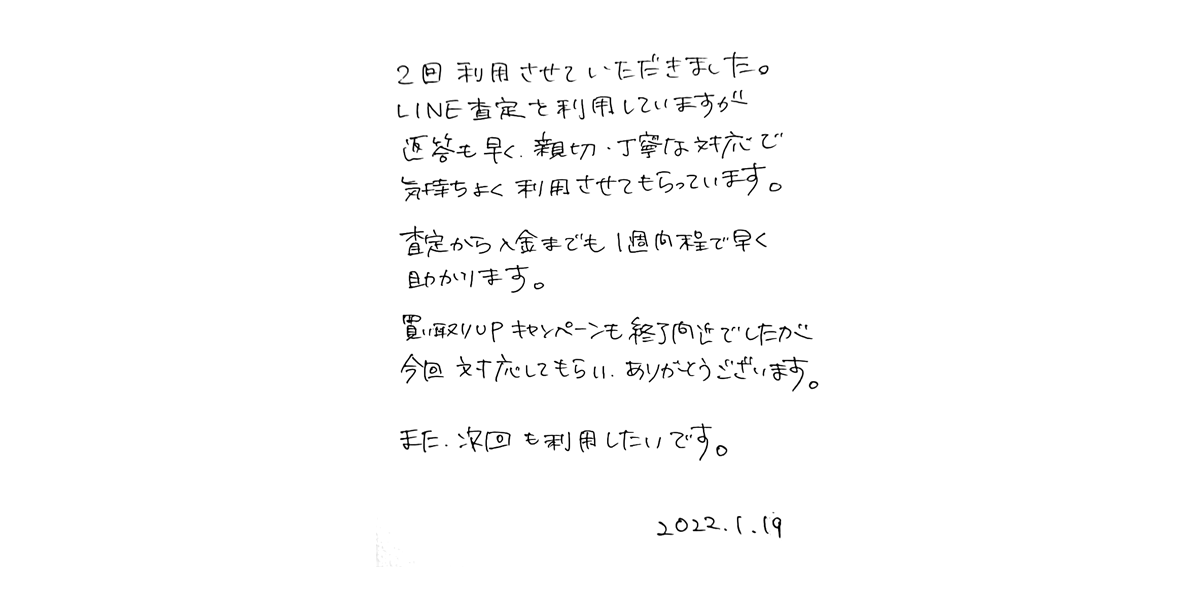 2回利用させていただきました。
LINE査定を利用していますが
返答も早く、親切・丁寧な対応で
気持ちよく利用させてもらっています。
査定から入金までも1週間程で早く
助かります。
買い取りUPキャンペーンも終了間近でしたが
今回対応してもらい、ありがとうございます。
また、次回も利用したいです。
2022.1.19